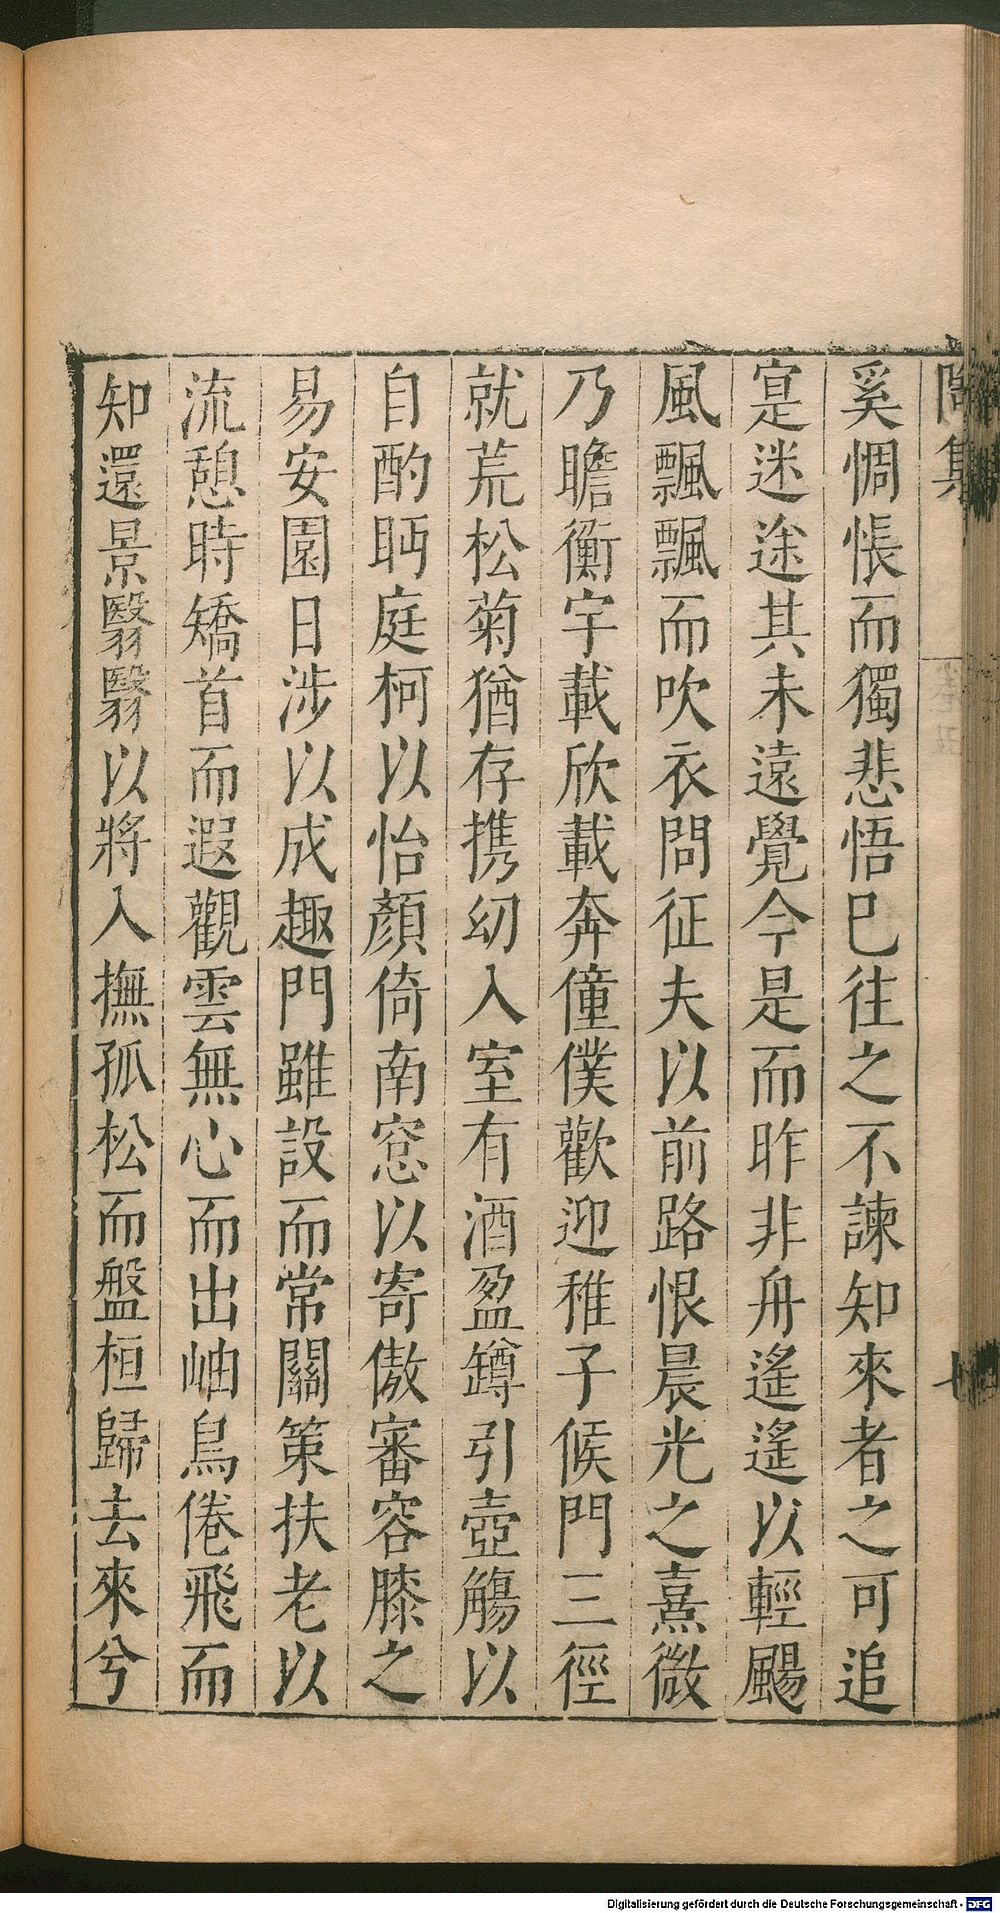 陶集
奚惆悵而獨悲悟巳往之不諫知來者之可追
寔迷途其未遠覺今是而昨非舟遙遙以輕颺
風飄飄而吹衣問征夫以前路恨晨光之熹微
乃瞻衡宇載欣載奔僮僕歡迎稚子候門三徑
就荒松菊猶存携幼入室有酒盈罇引壺觴以
自酌眄庭柯以怡顏倚南窓以寄傲審容膝之
易安園日涉以成趣門雖設而常關策扶老以
流憩時矯首而遐觀雲無心而出岫鳥倦飛而
知還景翳翳以將入撫孤松而盤桓歸去來兮
Digitalisierung gefördert durch die Deutsche Forschungsgemeinschaft - DFG